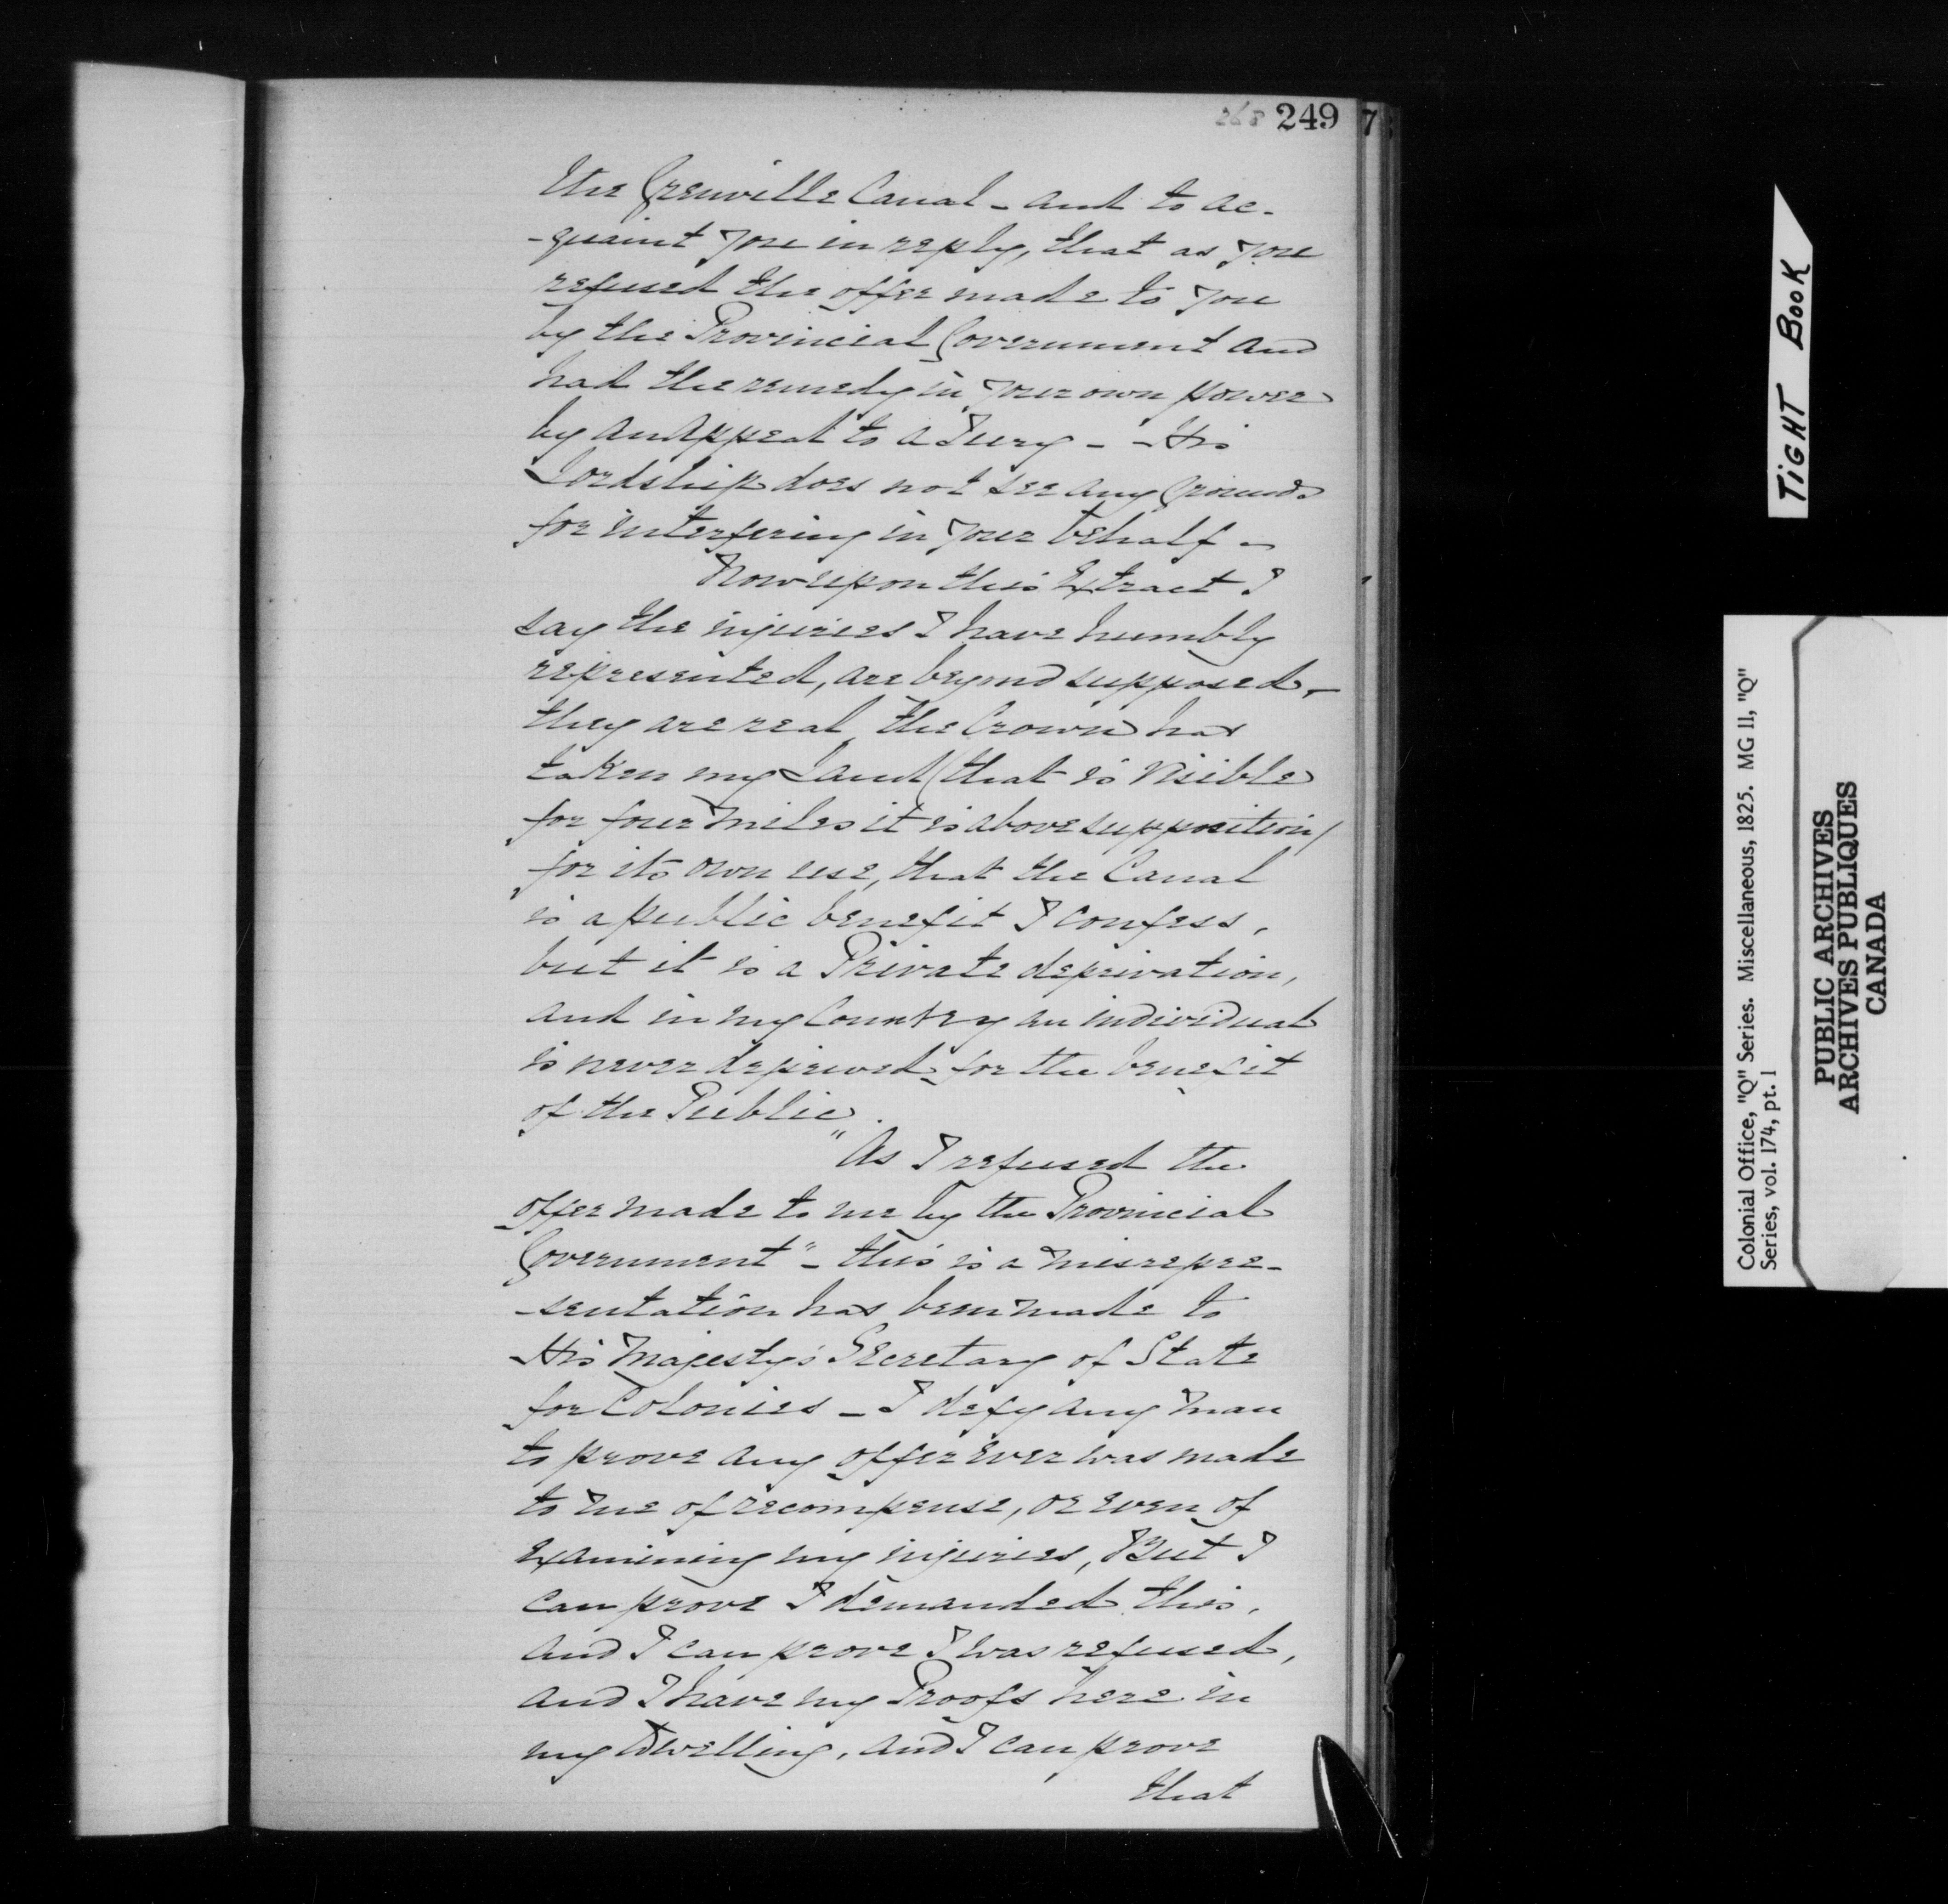 268 249
7
the Grenville Canal - and to ac-
-quaint you in reply, that as you
refused the offer made to you
by the Provincial Government and
had the remedy in your own power
by an Appeal to a Jury - - His
Lordship does not see any Grounds
for interfering in your behalf -
Now upon this Extract I
say the injuries I have humbly
represented, are beyond supposed, -
they are real, the Crown has
taken my Land (that is visible
for four Miles it is above supposition)
for its own use, that the Canal
is a public benefit I confess,
but it is a Private deprivation,
and in my Country an individual
is never deprived for the benefit
of the Public.
"As I refused the
offer made to me by the Provincial
Government" - this is a misrepre-
-sentation has been made to
His Majesty's Secretary of State
for Colonies - I defy any Man
to prove any offer ever was made
to me of recompense, or even of
Examining my injuries, But I
can prove I demanded this,
and I can prove I was refused,
and I have my Proofs here in
my Dwelling, and I can prove
that
TIGHT BOOK
Colonial Office, "Q" Series. Miscellaneous, 1825. MG 11, "Q"
Series, vol. 174, pt. 1
PUBLIC ARCHIVES
ARCHIVES PUBLIQUES
CANADA